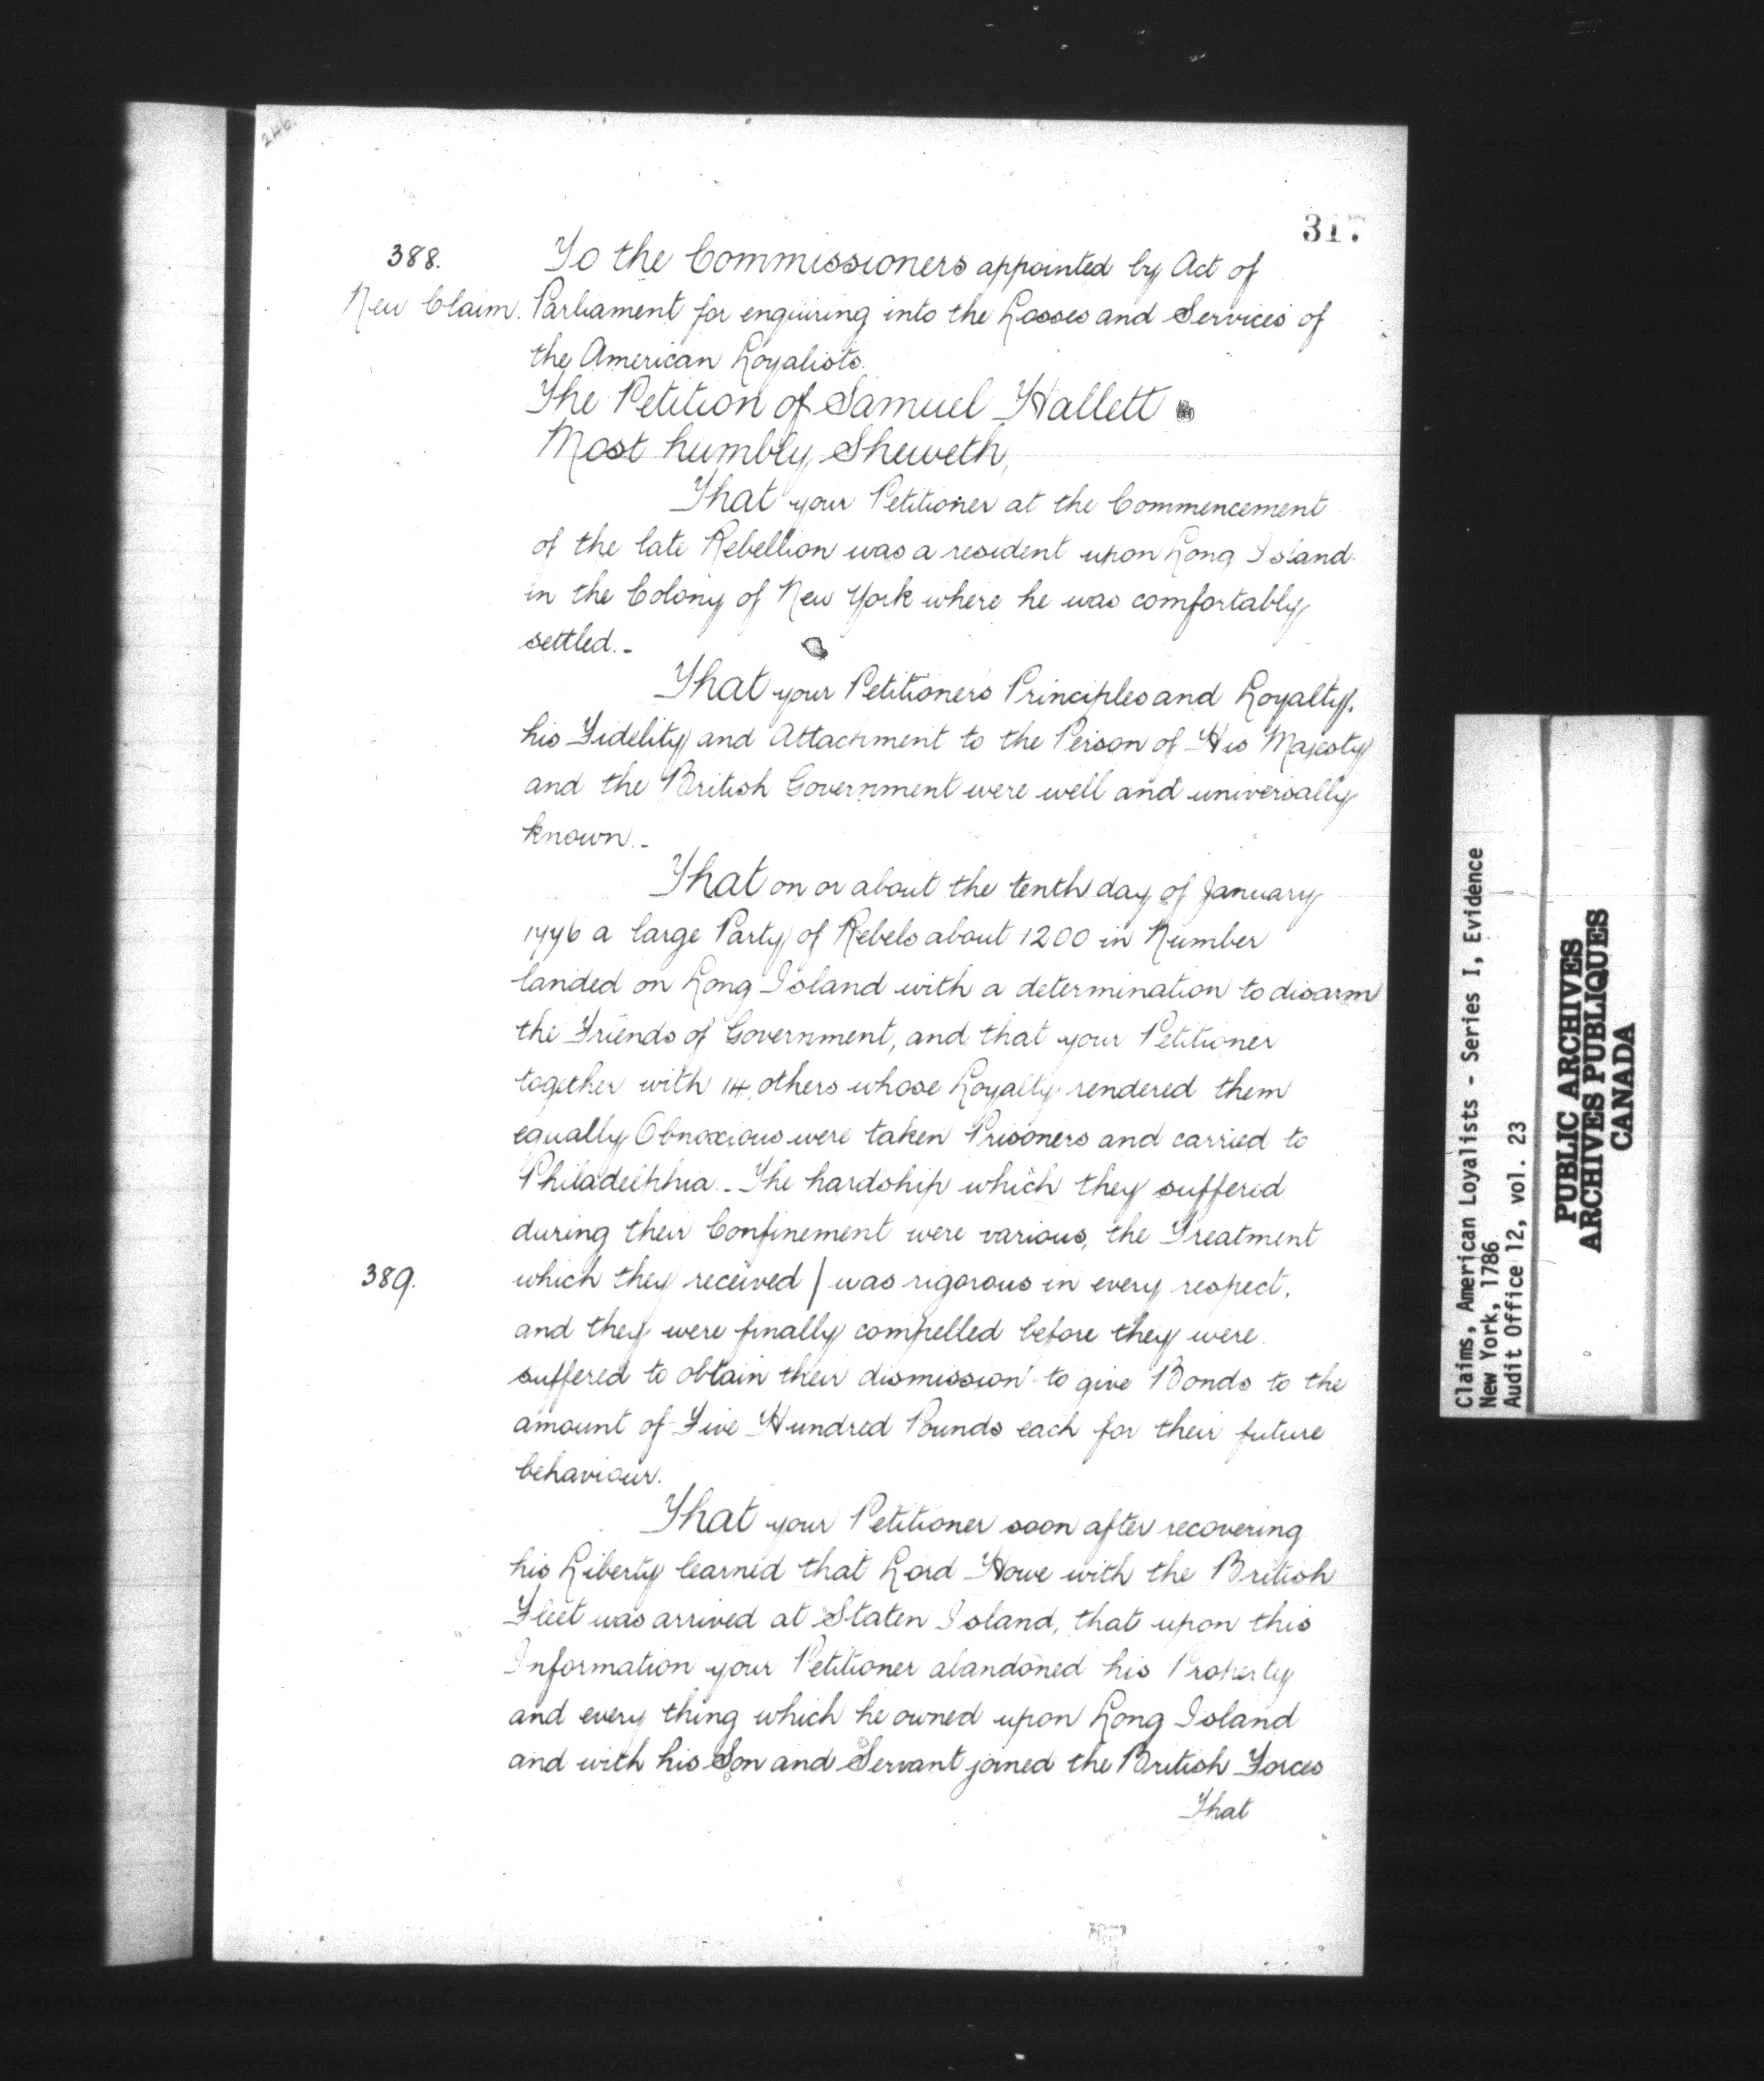 246.
317
388.
To the Commissioners appointed by Act of
New Claim. Parliament for enquiring into the Losses and Services of
the American Loyalists.
The Petition of Samuel Hallett
Most humbly Sheweth,
That your Petitioner at the Commencement
of the late Rebellion was a resident upon Long Island
in the Colony of New York where he was comfortably
settled.-
That your Petitioners Principles and Loyalty,
his Fidelity and Attachment to the Person of His Majesty
and the British Government were well and universally
known.-
That on or about the tenth day of January
1776 a large Party of Rebels about 1200 in Number
landed on Long Island with a determination to disarm
the Friends of Government, and that your Petitioner
together with 14 others whose Loyalty rendered them
equally Obnoxious were taken Prisoners and carried to
Philadelphia.- The hardship which they suffered
during their Confinement were various, the Treatment
389. which they received / was rigorous in every respect,
and they were finally compelled before they were
suffered to obtain their dismission to give Bonds to the
amount of Five Hundred Pounds each for their future
behaviour.
That your Petitioner soon after recovering
his Liberty learned that Lord Howe with the British
Fleet was arrived at Staten Island, that upon this
Information your Petitioner abandoned his Property
and every thing which he owned upon Long Island
and with his Son and Servant joined the British Forces
That
Claims, American Loyalists - Series I, Evidence
New York, 1786
Audit Office 12, vol. 23
PUBLIC ARCHIVES
ARCHIVES PUBLIQUES
CANADA